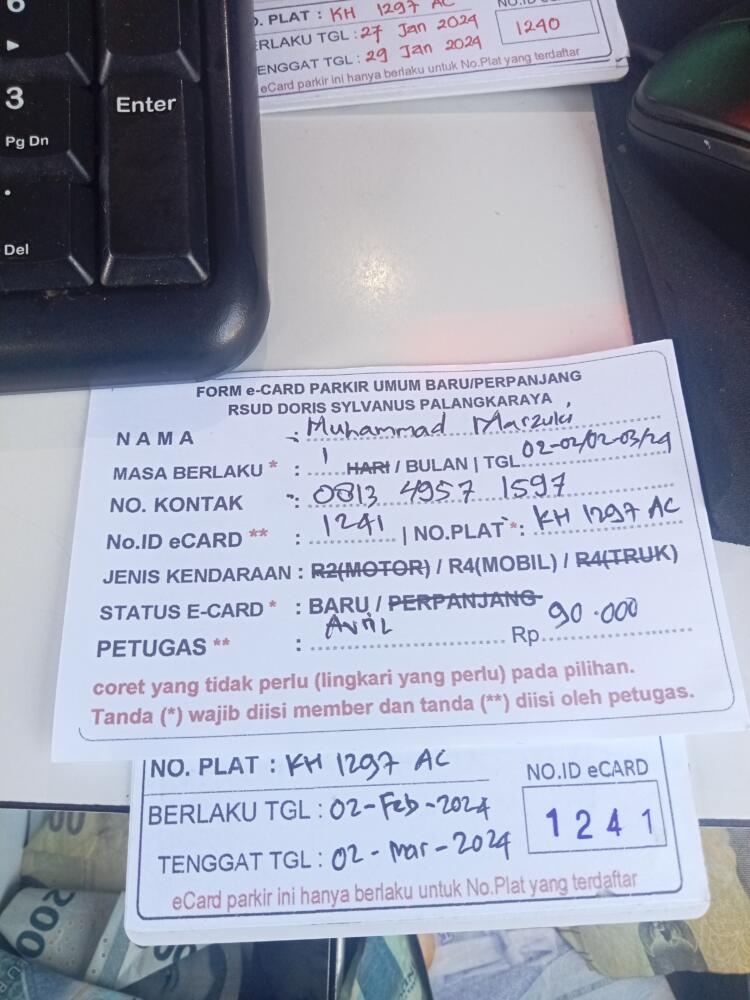 6
3
Pg Dn
.
Del
Enter
O. PLAT : KH 1297 AC
ERLAKU TGL : 27 Jan 2024
ENGGAT TGL : 29 Jan 2024
NO.ID
1240
eCard parkir ini hanya berlaku untuk No.Plat yang terdaftar
FORM e-CARD PARKIR UMUM BARU/PERPANJANG
RSUD DORIS SYLVANUS PALANGKARAYA
NAMA : Muhammad Marzuki
MASA BERLAKU * : 1 HARI / BULAN | TGL 02-02/02-03/24
NO. KONTAK : 0813 4957 1597
No.ID eCARD ** : 1241 | NO.PLAT *: KH 1297 AC
JENIS KENDARAAN : R2(MOTOR) / R4(MOBIL) / R4(TRUK)
STATUS E-CARD * : BARU / PERPANJANG
PETUGAS ** : Avril Rp 90.000
coret yang tidak perlu (lingkari yang perlu) pada pilihan.
Tanda (*) wajib diisi member dan tanda (**) diisi oleh petugas.
NO. PLAT : KH 1297 AC
BERLAKU TGL : 02-Feb-2024
TENGGAT TGL : 02-Mar-2024
NO.ID eCARD
1241
eCard parkir ini hanya berlaku untuk No.Plat yang terdaftar